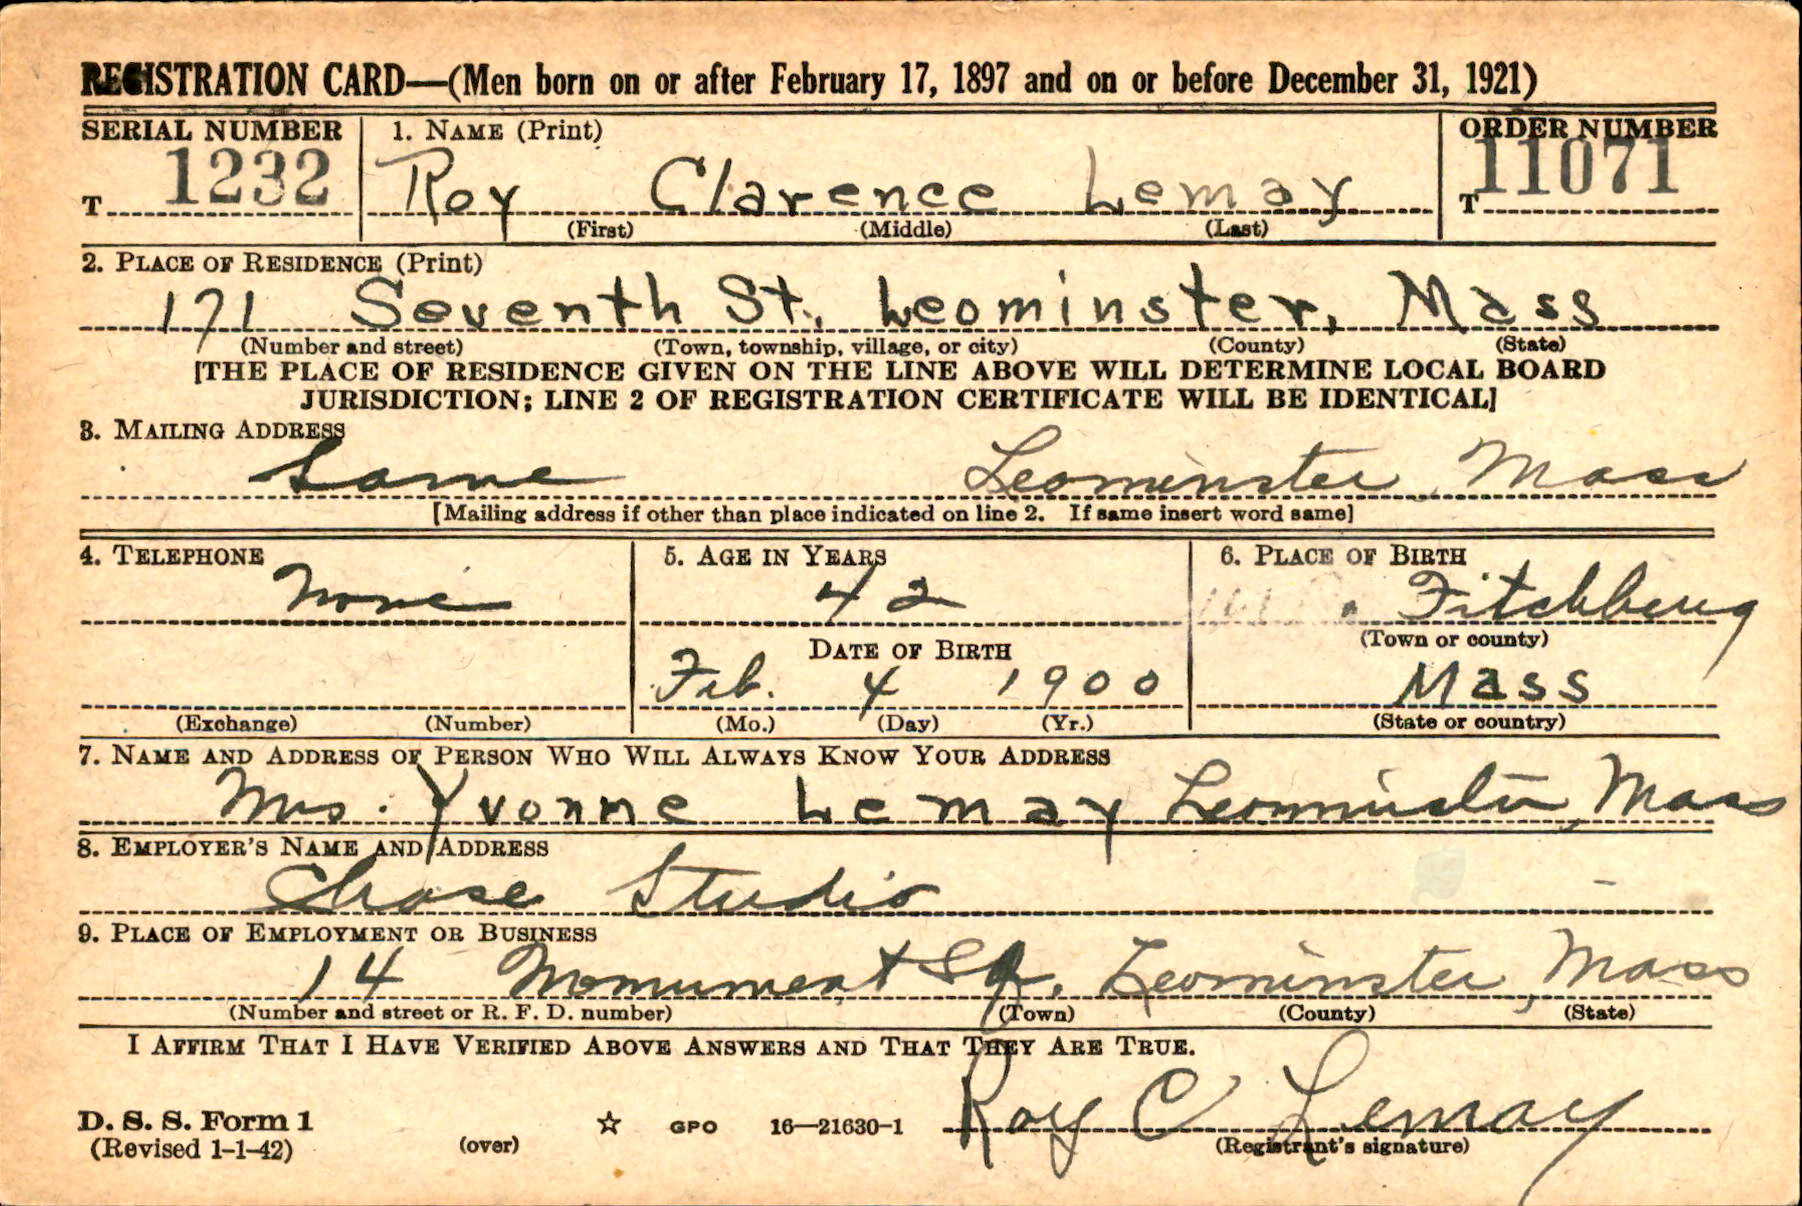 REGISTRATION CARD—(Men born on or after February 17, 1897 and on or before December 31, 1921)
SERIAL NUMBER 1. NAME (Print) ORDER NUMBER
T 1232 Roy Clarence Lemay T 11071
(First) (Middle) (Last)
2. PLACE OF RESIDENCE (Print)
171 Seventh St., Leominster, Mass
(Number and street) (Town, township, village, or city) (County) (State)
[THE PLACE OF RESIDENCE GIVEN ON THE LINE ABOVE WILL DETERMINE LOCAL BOARD
JURISDICTION; LINE 2 OF REGISTRATION CERTIFICATE WILL BE IDENTICAL]
3. MAILING ADDRESS
Same Leominster, Mass
[Mailing address if other than place indicated on line 2. If same insert word same]
4. TELEPHONE 5. AGE IN YEARS 6. PLACE OF BIRTH
None 42 Fitchburg
DATE OF BIRTH (Town or county)
Feb. 4 1900 Mass
(Exchange) (Number) (Mo.) (Day) (Yr.) (State or country)
7. NAME AND ADDRESS OF PERSON WHO WILL ALWAYS KNOW YOUR ADDRESS
Mrs. Yvonne Lemay Leominster, Mass
8. EMPLOYER'S NAME AND ADDRESS
Chase Studio
9. PLACE OF EMPLOYMENT OR BUSINESS
14 Monument Sq. Leominster, Mass
(Number and street or R. F. D. number) (Town) (County) (State)
I AFFIRM THAT I HAVE VERIFIED ABOVE ANSWERS AND THAT THEY ARE TRUE.
Roy C Lemay
D. S. S. Form 1 GPO 16—21630-1 (Registrant's signature)
(Revised 1-1-42) (over)